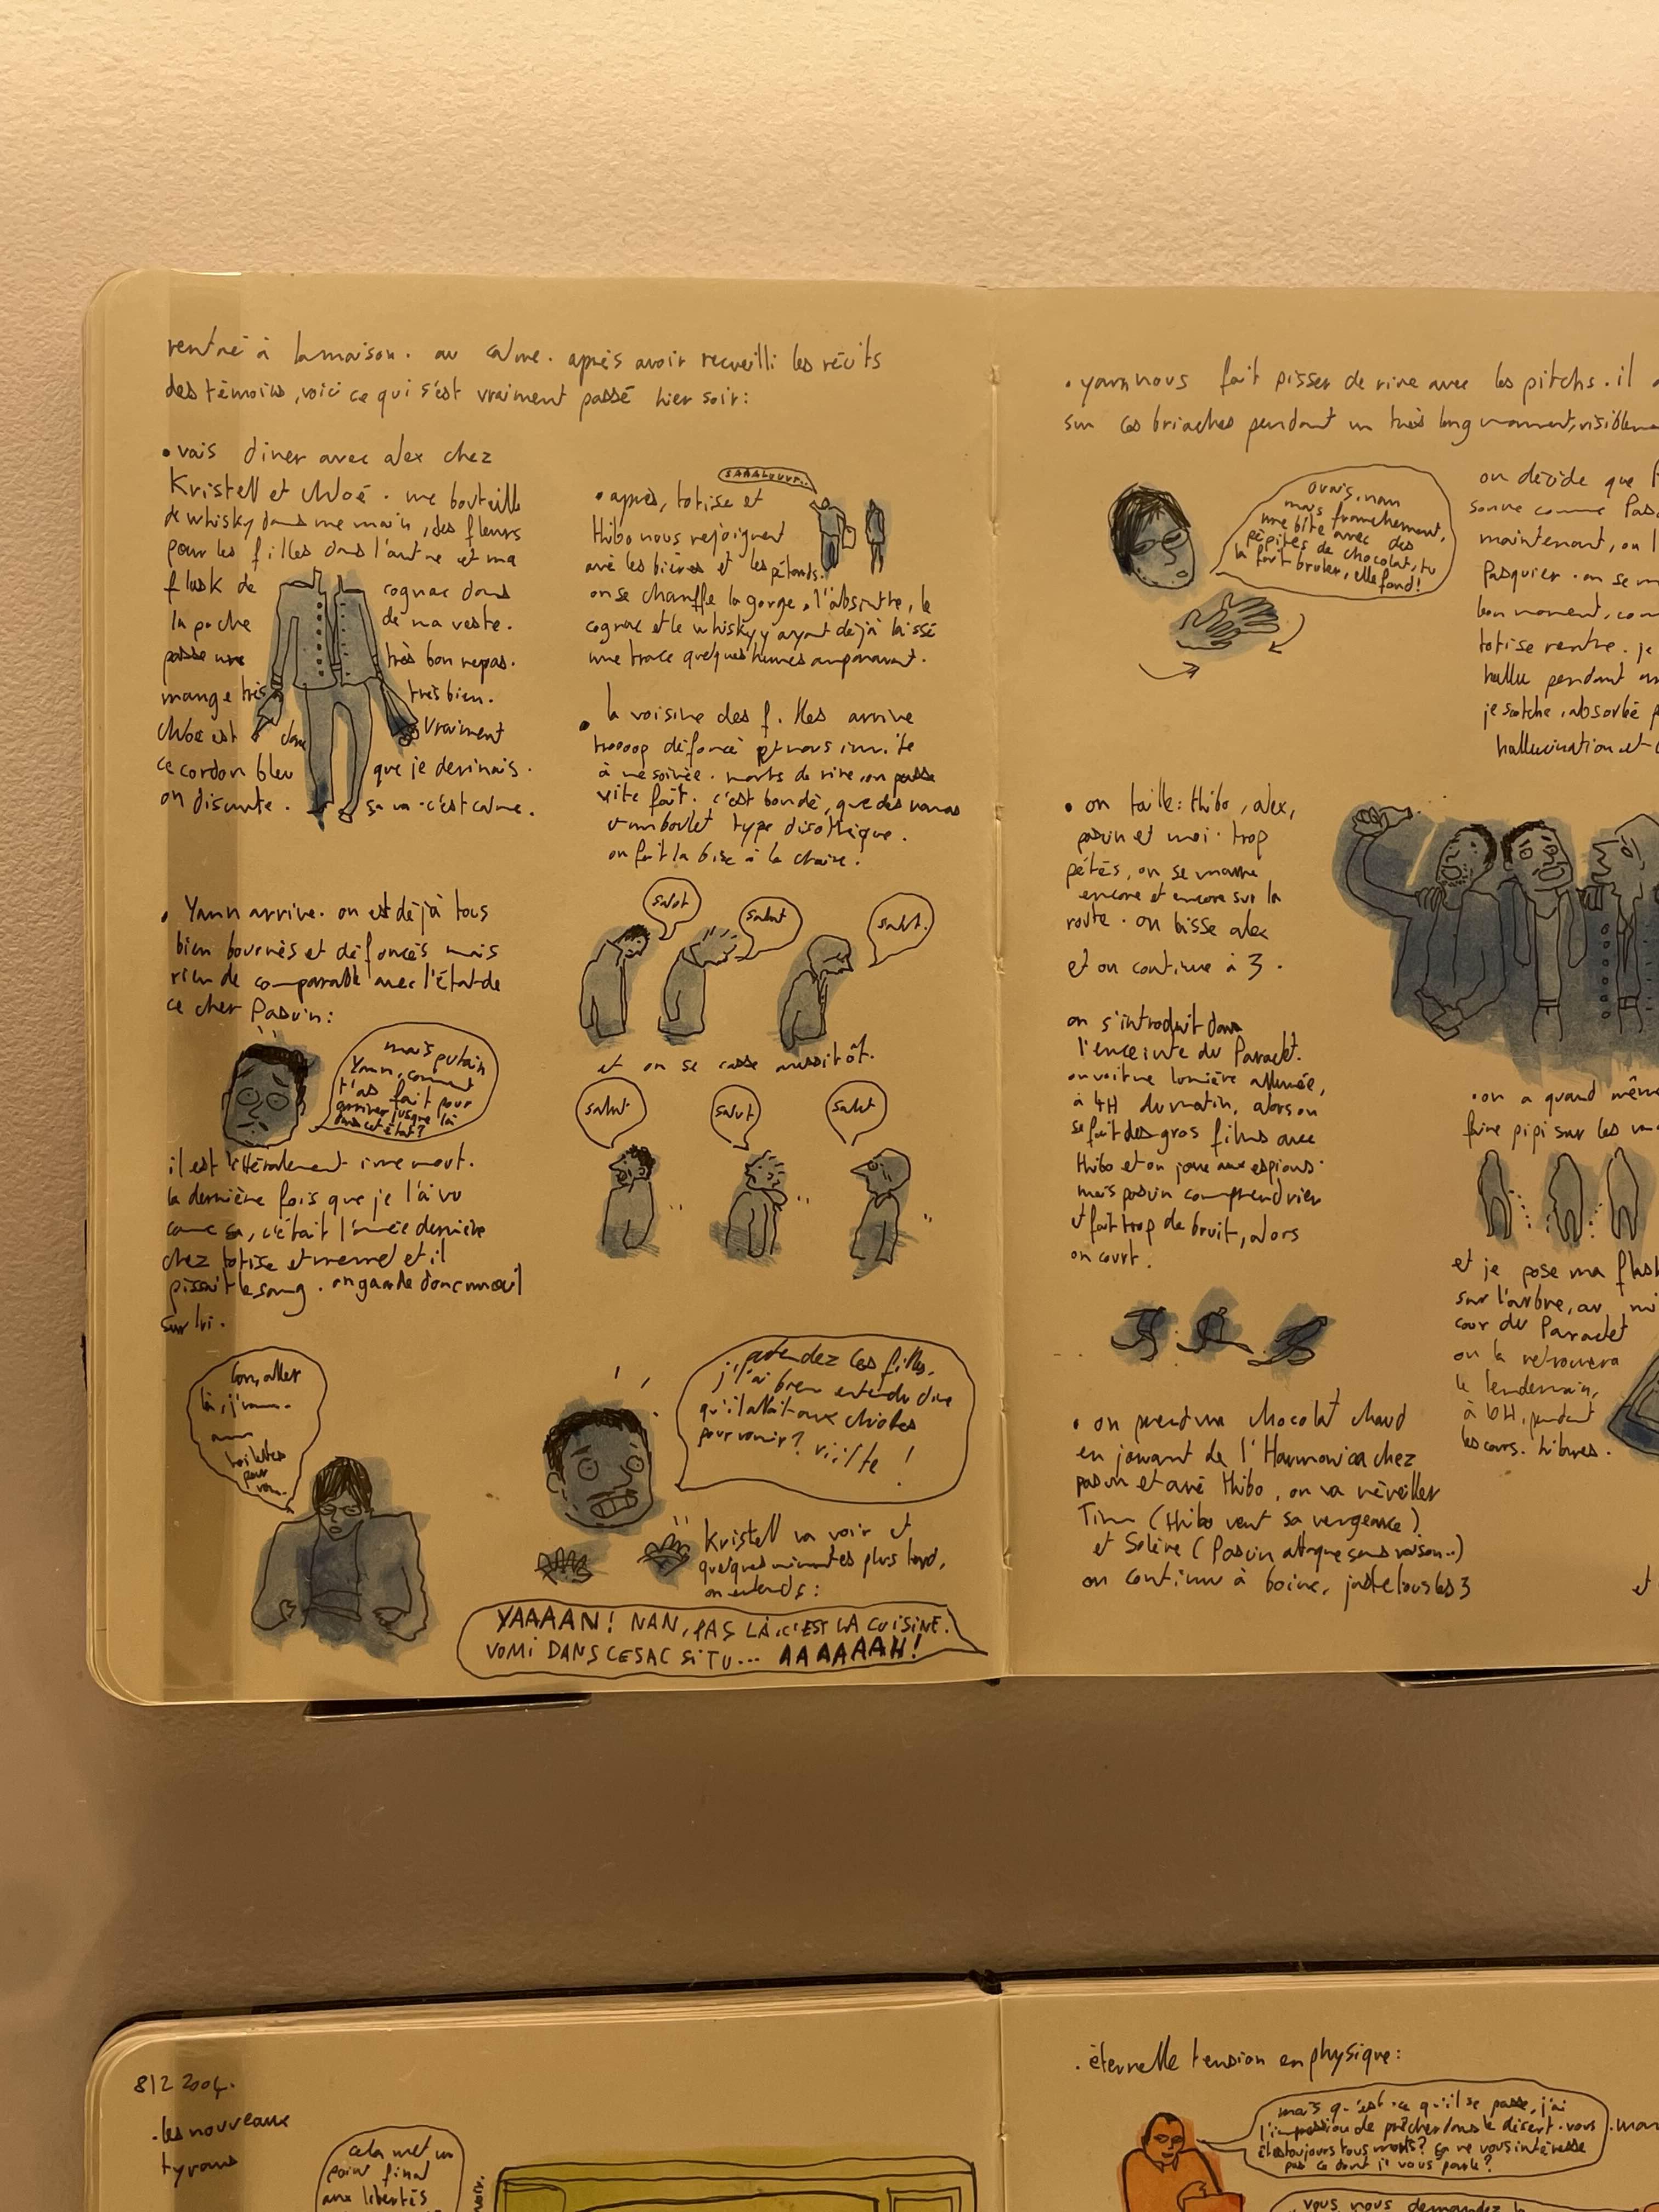 rentré à la maison. au calme. après avoir recueilli les récits
des témoins, voici ce qui s'est vraiment passé hier soir:
• vais diner avec alex chez
Kristell et chloé. une bouteille
de whisky dans une main, des fleurs
pour les filles dans l'autre et ma
flask de cognac dans
la poche de ma veste.
passe une très bon repas.
mange très très bien.
chloé est donc vraiment
ce cordon bleu que je devinais.
on discute. sa va. c'est calme.
• Yann arrive. on est déjà tous
bien bourrés et défoncés mais
rien de comparable avec l'état de
ce cher Pasuin:
mais putain
Yann, comment
t'as fait pour
arriver jusque là
dans cet état?
il est littéralement ivre mort.
la dernière fois que je l'ai vu
comme sa, c'était l'année dernière
chez totise et et il
pissait le sang. on garde donc un œil
sur lui.
aller
là, j'
toilettes
pour
SAAALUUUT..
• après, totise et
thibo nous rejoignent
avé les bières et les pétards.
on se chauffe la gorge, l'absinthe, le
cognac et le whisky y ayant déjà laissé
une trace quelques heures auparavant.
• la voisine des filles arrive
troooop défoncé et nous invite
à une soirée. morts de rire, on passe
vite fait. c'est bondé, que des
et un boulet type disothèque.
on fait la bise à la chaine.
salut
salut
salut.
et on se casse aussitôt.
salut
salut
salut
attendez les filles,
j'l'ai bien entendu dire
qu'il allait aux chiottes
pour vomir? viiite!
Kristell va voir et
quelques minutes plus tard,
on entends:
YAAAAN! NAN, PAS LÀ, C'EST LA CUISINE.
VOMI DANS CE SAC SI TU... AAAAAAH!
• yann nous fait pisser de rire avec les pitchs. il
sur ces brioches pendant un très long moment, visiblem
ouais, nan
mais franchement,
une bite avec des
pépites de chocolat, tu
la fait bruler, elle fond!
on décide que
sonne comme Pas
maintenant, on l
Pasquier. on se m
bon moment, com
totise rentre. je
hallu pendant
je scotche, absorbé p
hallucination et
• on taille: thibo, alex,
pasuin et moi. trop
pétés, on se marre
encore et encore sur la
route. on laisse alex
et on continue à 3.
on s'introduit dans
l'enceinte du Paraclet.
on voit une lumière allumée,
à 4H du matin, alors on
se fait des gros films avec
thibo et on joue aux espions.
mais pasuin comprend rien
et fait trop de bruit, alors
on court.
• on a quand même
faire pipi sur les
et je pose ma flask
sur l'arbre, au mi
cour du Paraclet
on la retrouvera
le lendemain,
à 10H, pendant
les cours. hihihi.
• on prend un chocolat chaud
en jouant de l'Harmonica chez
pasuin et avé thibo, on va réveiller
Tim (thibo veut sa vengeance)
et Solène (Pasuin attaque sans raison..)
on continue à boire, juste tous les 3
et
8/2 2004.
• les nouveaux
tyrans
cela met un
point final
aux libertés
noir.
• éternelle tension en physique:
mais qu'est-ce qu'il se passe, j'ai
l'impression de prêcher dans le désert. vous
êtes toujours tous morts? ça ne vous intéresse
pas ce dont je vous parle?
vous nous demandez